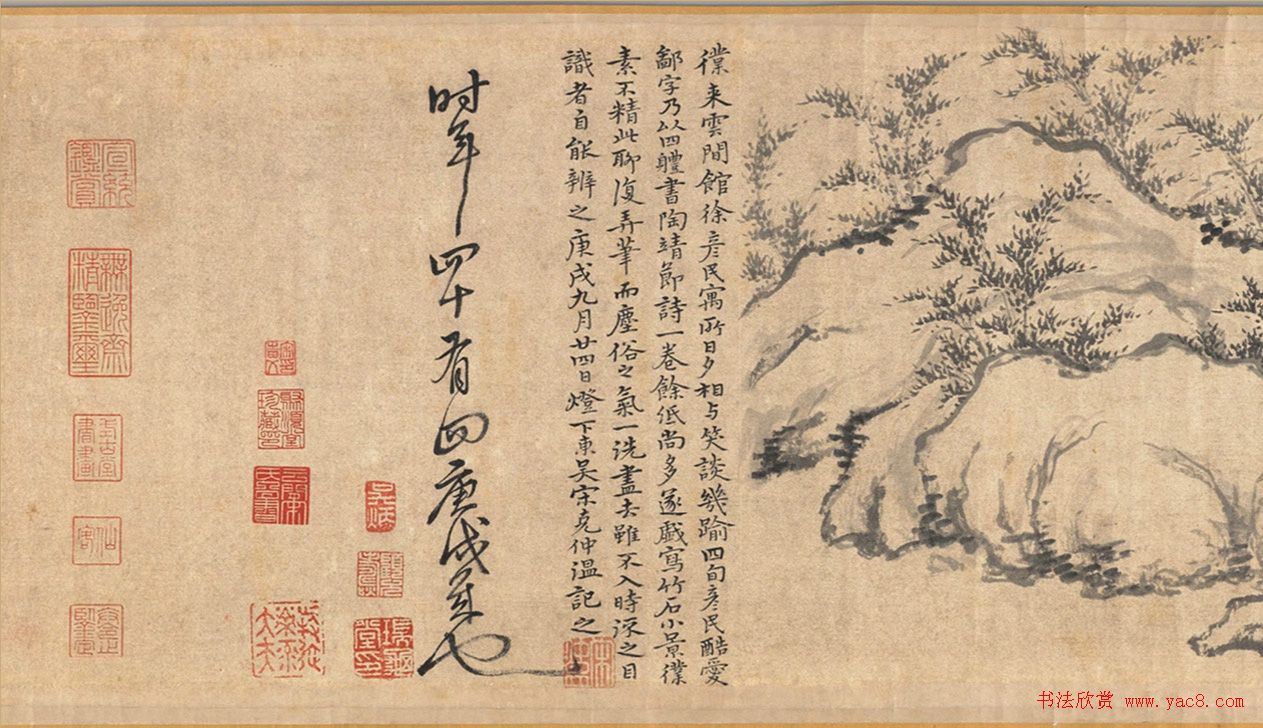 僕来雲間館徐彦民寓所日夕相与笑談幾踰四旬彦民酷愛
鄙字乃以四軆書陶靖節詩一卷餘紙尚多遂戲寫竹石小景僕
素不精此聊復弄筆而塵俗之氣一洗盡去雖不入時流之目
識者自能辨之庚戌九月廿四日燈下東吳宋克仲溫記之
时年四十有四庚戌年也
宣統鑑賞
無逸齋精鑒璽
仙客
书法欣赏 www.yac8.com